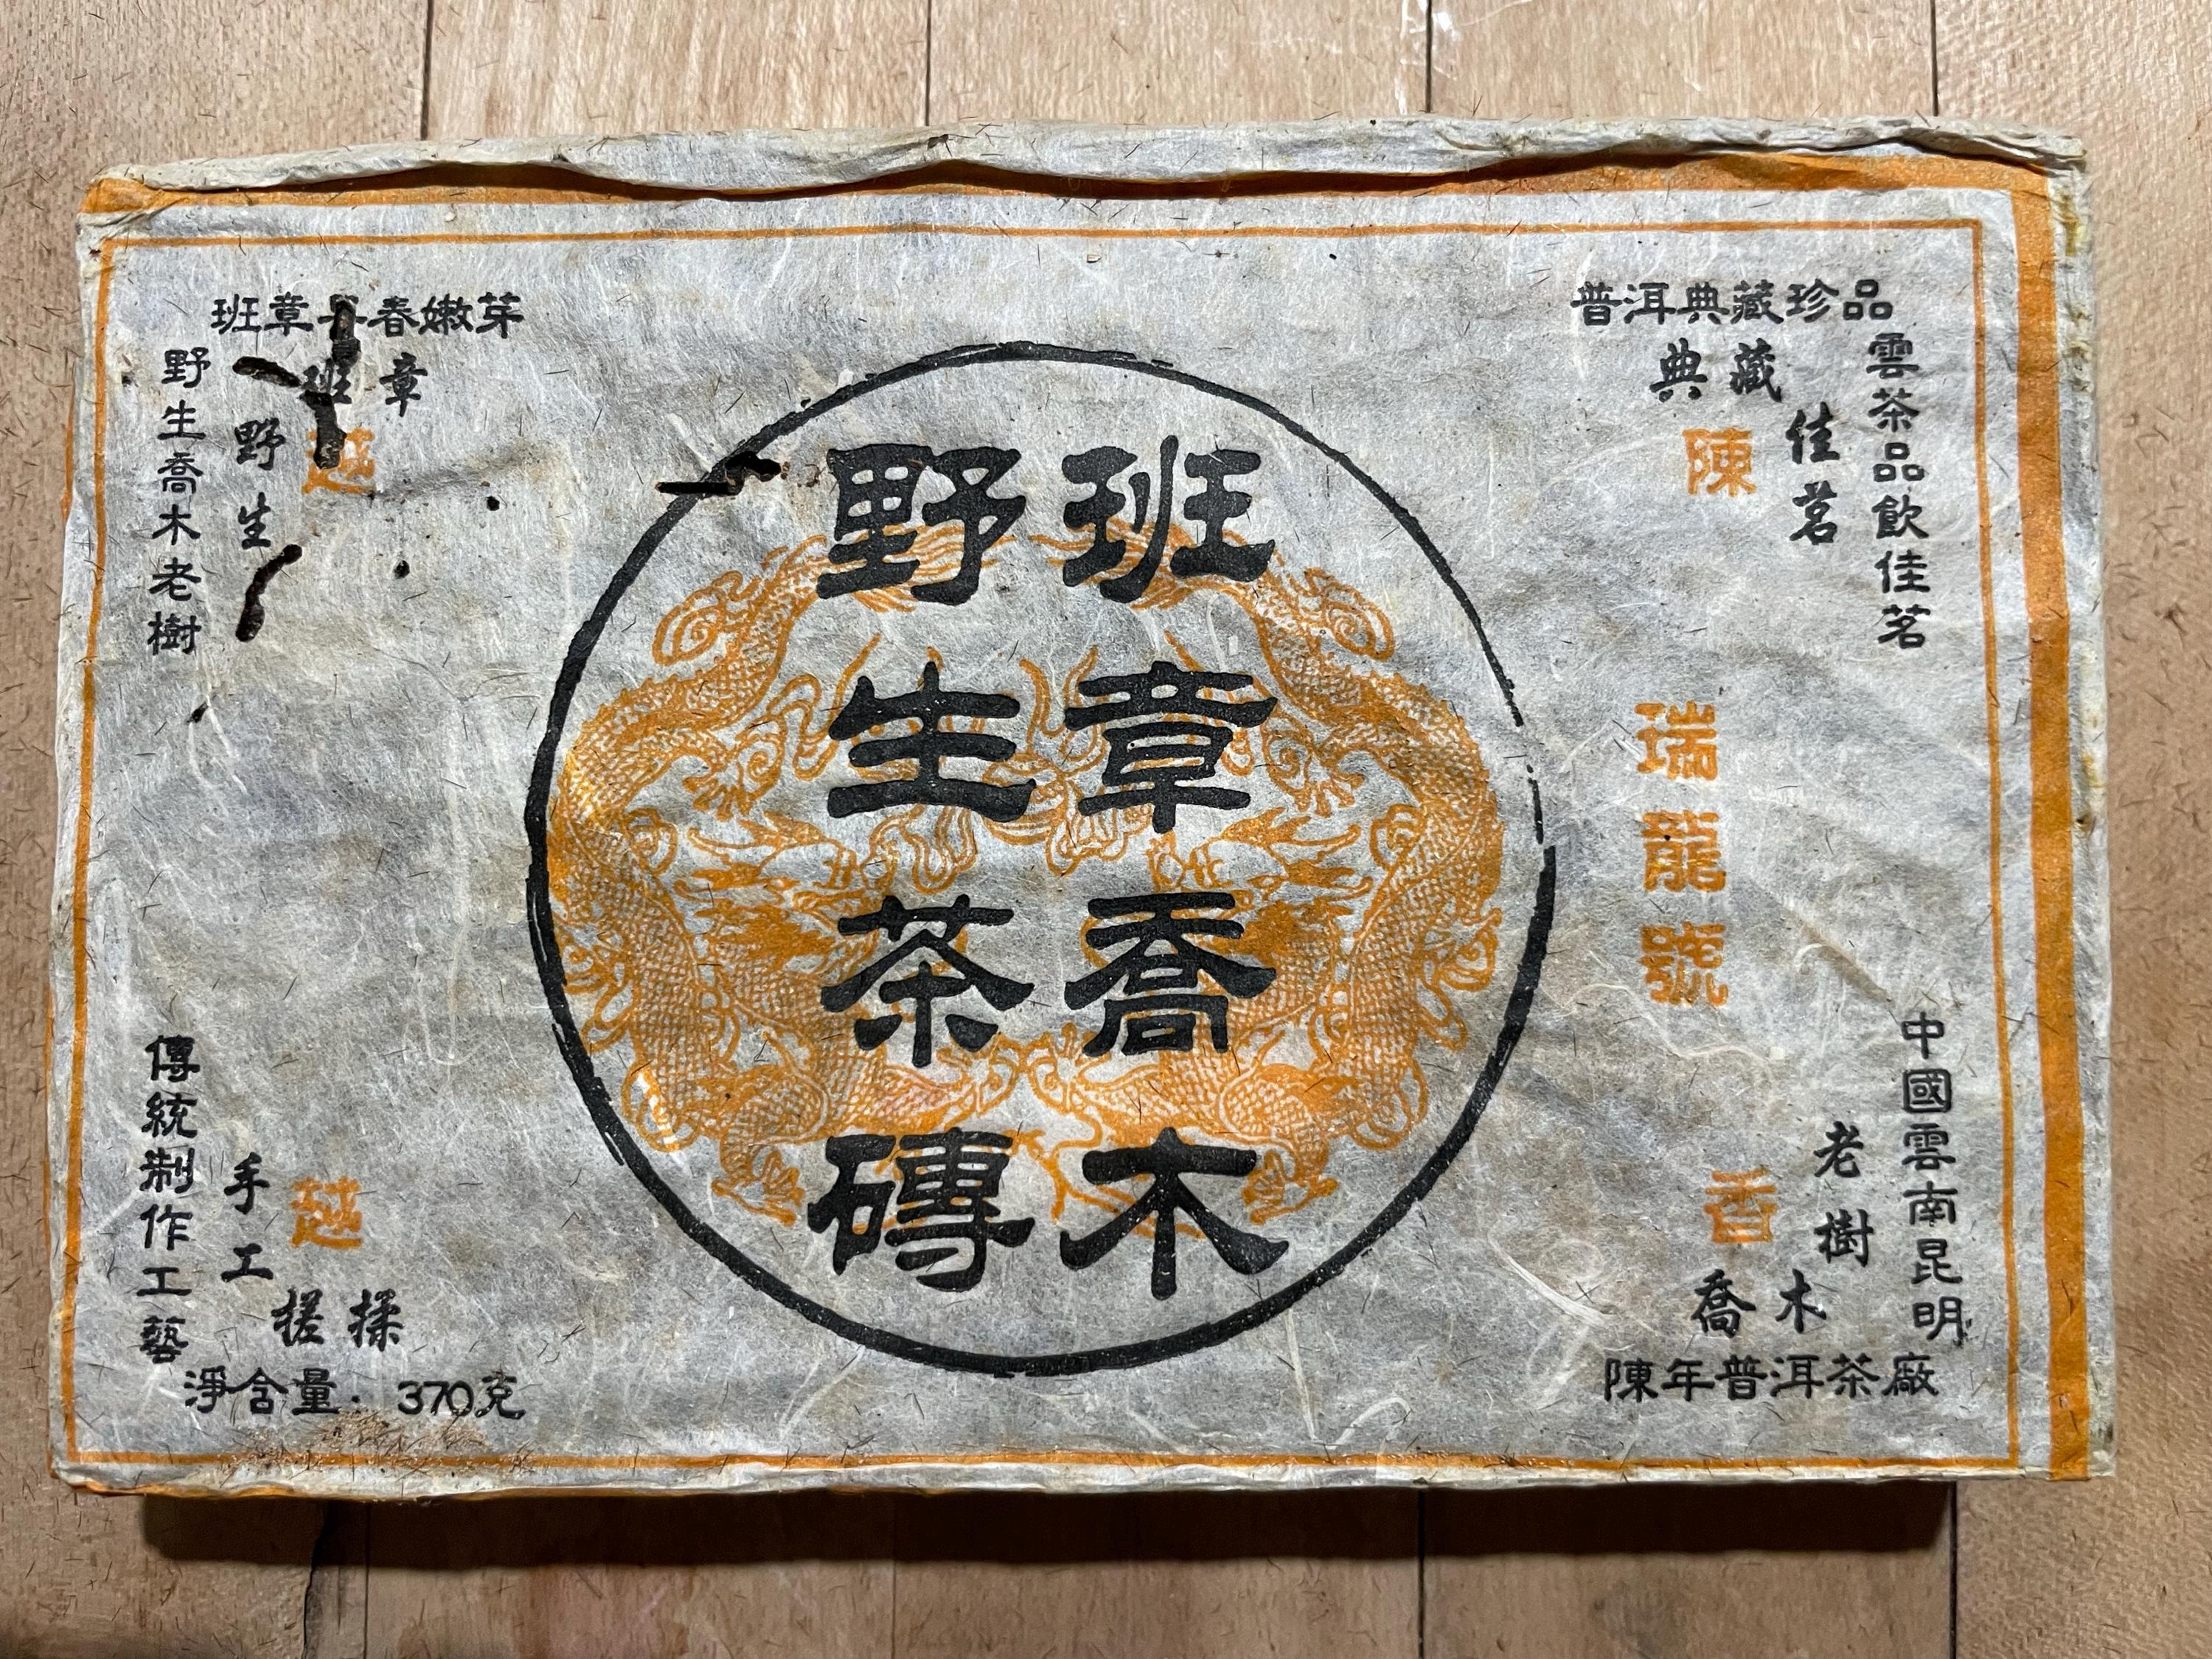 班章喬木
野生茶磚
普洱典藏珍品
雲茶品飲佳茗
典藏
佳茗
陳
瑞龍號
中國雲南昆明
老樹
香
喬木
陳年普洱茶廠
班章 春嫩芽
野生喬木老樹
班章
野生
越
傳統制作工藝
手工
越
搓揉
淨含量:370克